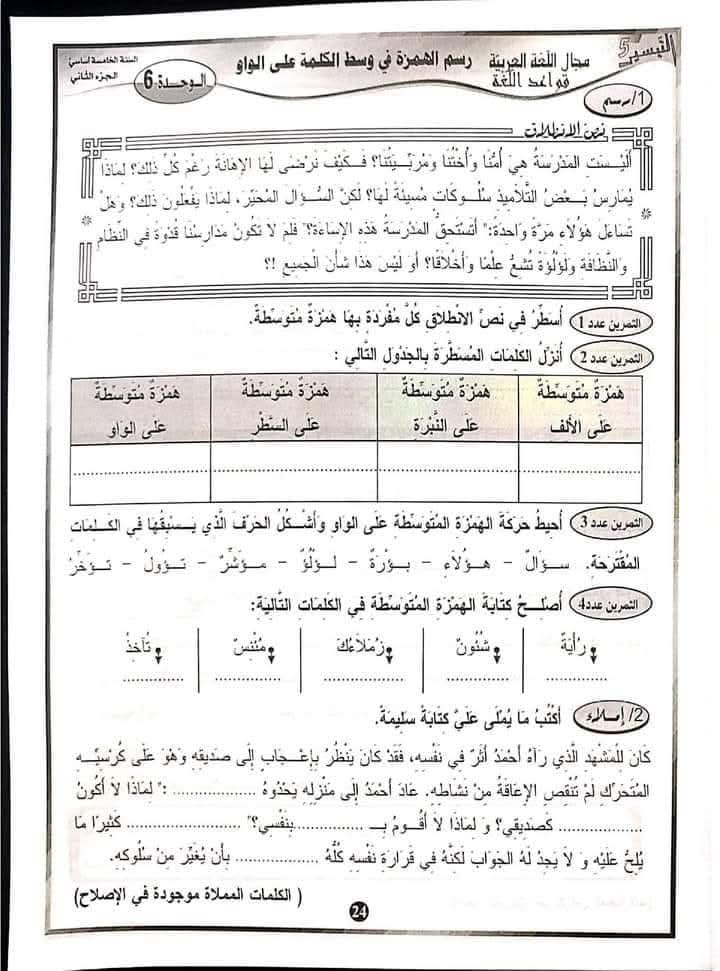 التيسير 5
مجال اللغة العربية
قواعد اللغة
رسم الهمزة في وسط الكلمة على الواو
الوحدة 6
السنة الخامسة أساسي
الجزء الثاني
1/ رسم
نص الانطلاق
أَلَيْسَتِ المَدْرَسَةُ هِيَ أُمُّنَا وَأُخْتُنَا وَمُرَبِّيَتُنَا؟ فَكَيْفَ نَرْضَى لَهَا الإِهَانَةَ رَغْمَ كُلِّ ذلِكَ؟ لِمَاذَا
يُمَارِسُ بَعْضُ التَّلَامِيذِ سُلُوكَاتٍ مُسِيئَةً لَهَا؟ لَكِنَّ السُّؤَالَ المُحَيِّرَ، لِمَاذَا يَفْعَلُونَ ذَلِكَ؟ وَهَلْ
تَسَاءَلَ هَؤُلَاءِ مَرَّةً وَاحِدَةً:" أَتَسْتَحِقُّ المَدْرَسَةُ هَذِهِ الإِسَاءَةَ؟" فَلِمَ لَا تَكُونُ مَدَارِسُنَا قُدْوَةً فِي النِّظَامِ
وَالنَّظَافَةِ وَلُؤْلُؤَةً تُشِعُّ عِلْمًا وَأَخْلَاقًا؟ أَوَ لَيْسَ هَذَا شَأْنَ الْجَمِيعِ !؟
التمرين عدد 1 أُسَطِّرُ فِي نَصِّ الاِنْطِلَاقِ كُلَّ مُفْرَدَةٍ بِهَا هَمْزَةٌ مُتَوَسِّطَةٌ.
التمرين عدد 2 أُنَزِّلُ الكَلِمَاتِ المُسَطَّرَةَ بِالجَدْوَلِ التَّالِي :
هَمْزَةٌ مُتَوَسِّطَةٌ عَلَى الأَلِفِ
هَمْزَةٌ مُتَوَسِّطَةٌ عَلَى النَّبْرَةِ
هَمْزَةٌ مُتَوَسِّطَةٌ عَلَى السَّطْرِ
هَمْزَةٌ مُتَوَسِّطَةٌ عَلَى الوَاوِ
التمرين عدد 3 أُحِيطُ حَرَكَةَ الهَمْزَةِ المُتَوَسِّطَةِ عَلَى الوَاوِ وَأَشْكُلُ الحَرْفَ الَّذِي يَسْبِقُهَا فِي الكَلِمَاتِ
المُقْتَرَحَةِ. سؤَالٌ - هؤُلَاءِ - بؤْرَةٌ - لؤْلُؤٌ - مؤَشِّرٌ - تؤُولُ - تؤَخِّرُ
التمرين عدد4 أُصْلِحُ كِتَابَةَ الهَمْزَةِ المُتَوَسِّطَةِ فِي الكَلِمَاتِ التَّالِيَةِ:
رُأْيَةٌ
شُئُونٌ
زُمَلَاءُكَ
مُئْنِسٌ
تُآخِذُ
2/ إملاء أَكْتُبُ مَا يُمْلَى عَلَيَّ كِتَابَةً سَلِيمَةً.
كَانَ لِلْمَشْهَدِ الَّذِي رَآهُ أَحْمَدُ أَثَرٌ فِي نَفْسِهِ، فَقَدْ كَانَ يَنْظُرُ بِإِعْجَابٍ إِلَى صَدِيقِهِ وَهْوَ عَلَى كُرْسِيِّهِ
المُتَحَرِّكِ لَمْ تُنْقِصِ الإِعَاقَةُ مِنْ نَشَاطِهِ. عَادَ أَحْمَدُ إِلَى مَنْزِلِهِ يَحْدُوهُ ................:" لِمَاذَا لَا أَكُونُ
................ كَصَدِيقِي؟ وَ لِمَاذَا لَا أَقُومُ بِـ ................بِنَفْسِي؟" ................ كَثِيرًا مَا
يُلِحُّ عَلَيْهِ وَ لَا يَجِدُ لَهُ الجَوَابَ لَكِنَّهُ فِي قَرَارَةِ نَفْسِهِ كُلُّهُ ................ بِأَنْ يُغَيِّرَ مِنْ سُلُوكِهِ.
( الكلمات المملاة موجودة في الإصلاح)
24